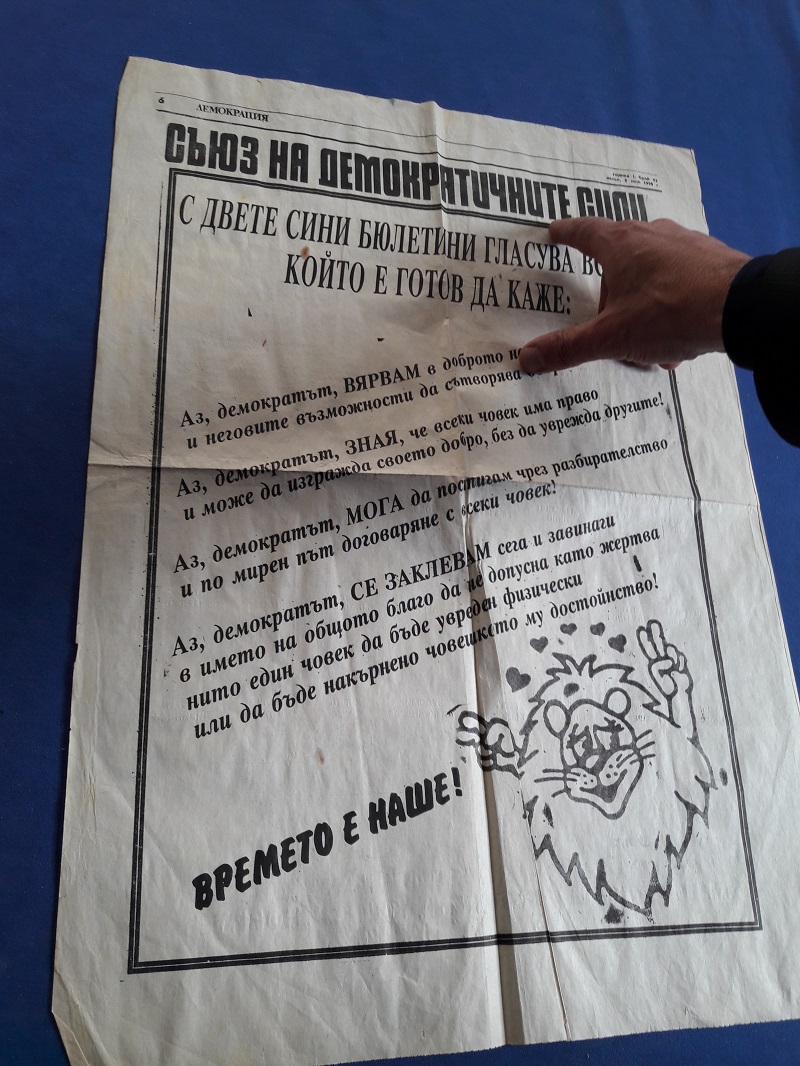 6
ДЕМОКРАЦИЯ
година I, брой
СЪЮЗ НА ДЕМОКРАТИЧНИТЕ СИЛИ
С ДВЕТЕ СИНИ БЮЛЕТИНИ ГЛАСУВА
КОЙТО Е ГОТОВ ДА КАЖЕ:
Аз, демократът, ВЯРВАМ в доброто
и неговите възможности да сътворява
Аз, демократът, ЗНАЯ, че всеки човек има право
и може да изгражда своето добро, без да уврежда другите!
Аз, демократът, МОГА да постигам чрез разбирателство
и по мирен път договаряне с всеки човек!
Аз, демократът, СЕ ЗАКЛЕВАМ сега и завинаги
в името на общото благо да не допусна като жертва
нито един човек да бъде увреден физически
или да бъде накърнено човешкото му достойнство!
ВРЕМЕТО Е НАШЕ!